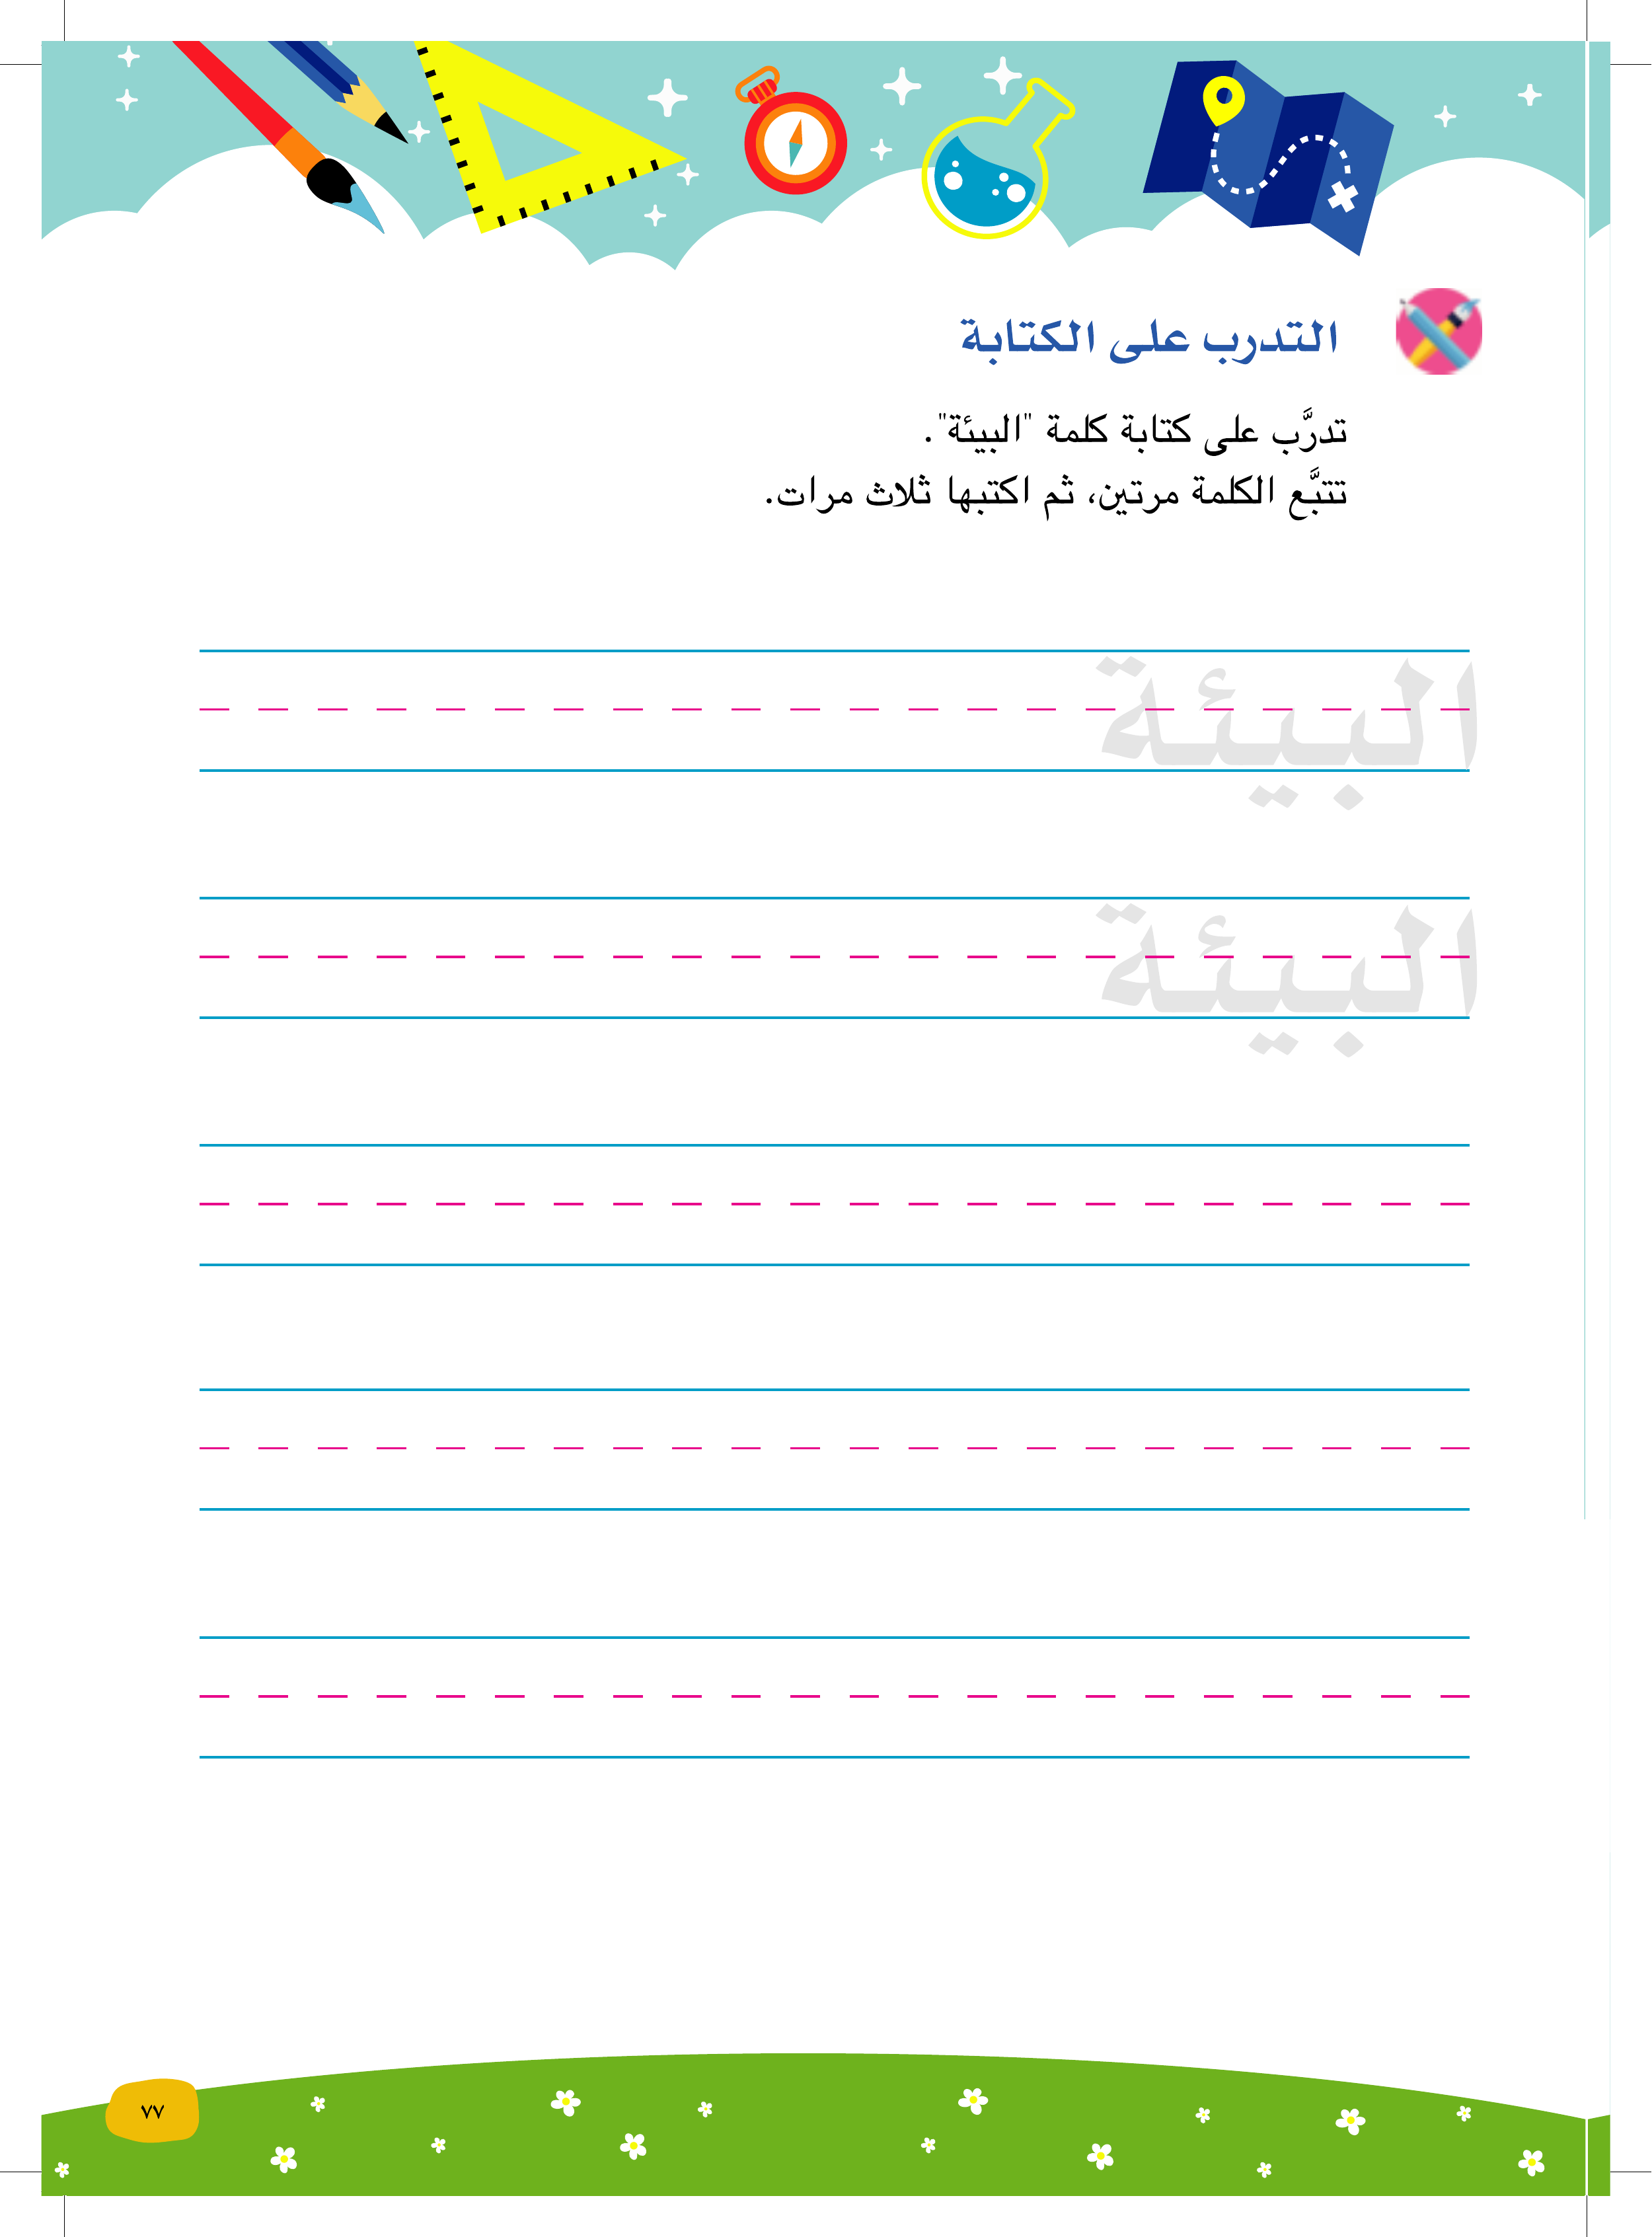 التدرب على الكتابة
تدرَّب على كتابة كلمة "البيئة".
تتبَّع الكلمة مرتين، ثم اكتبها ثلاث مرات.
البيئة
البيئة
٧٧